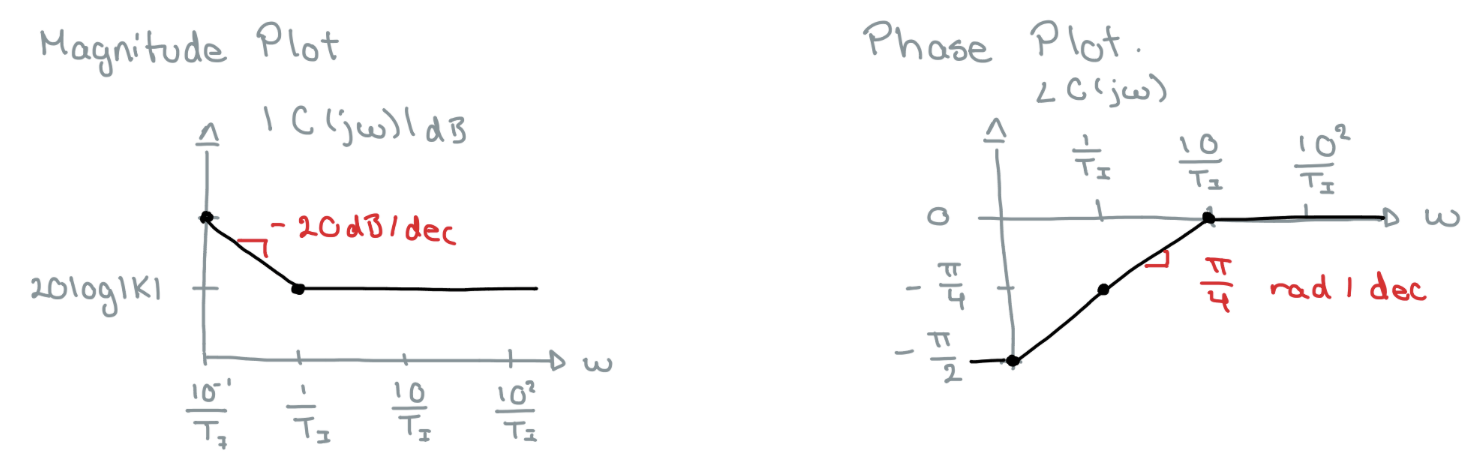 Magnitude Plot
|C(jω)|dB
-20dB/dec
20log|K|
10⁻¹/T_I 1/T_I 10/T_I 10²/T_I ω
Phase Plot.
∠C(jω)
1/T_I 10/T_I 10²/T_I
0 ω
-π/4 π/4 rad/dec
-π/2